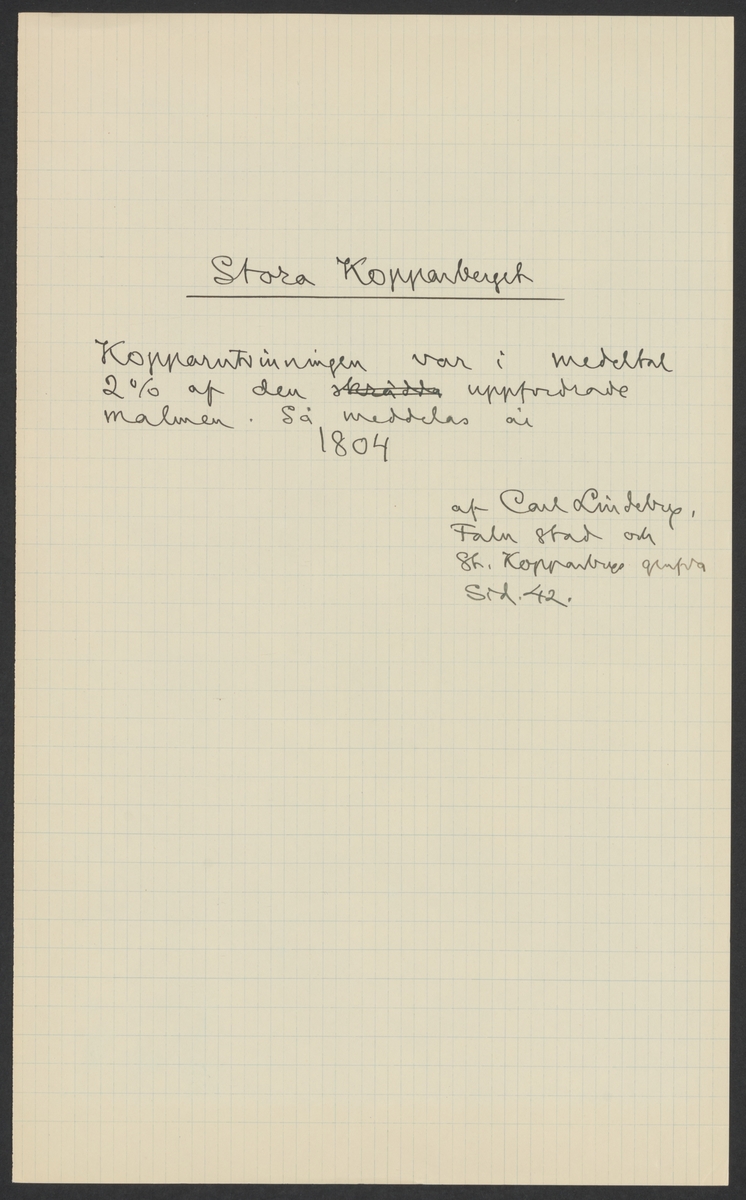 Stora Kopparberget
Kopparutvinningen var i medeltal
2% af den skrädda uppfordrade
malmen. Så meddelas år
1804
af Carl Lindeberg,
Falu stad och
St. Kopparbergs grufva
Sid. 42.